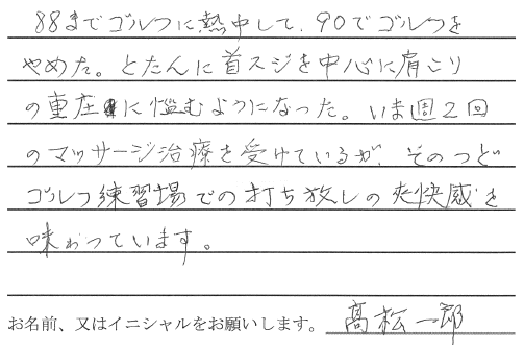 88までゴルフに熱中して、90でゴルフを
やめた。とたんに首スジを中心に肩こり
の重圧に悩むようになった。いま週2回
のマッサージ治療を受けているが、そのつど
ゴルフ練習場での打ち放しの爽快感を
味わっています。
お名前、又はイニシャルをお願いします。 髙松一郎